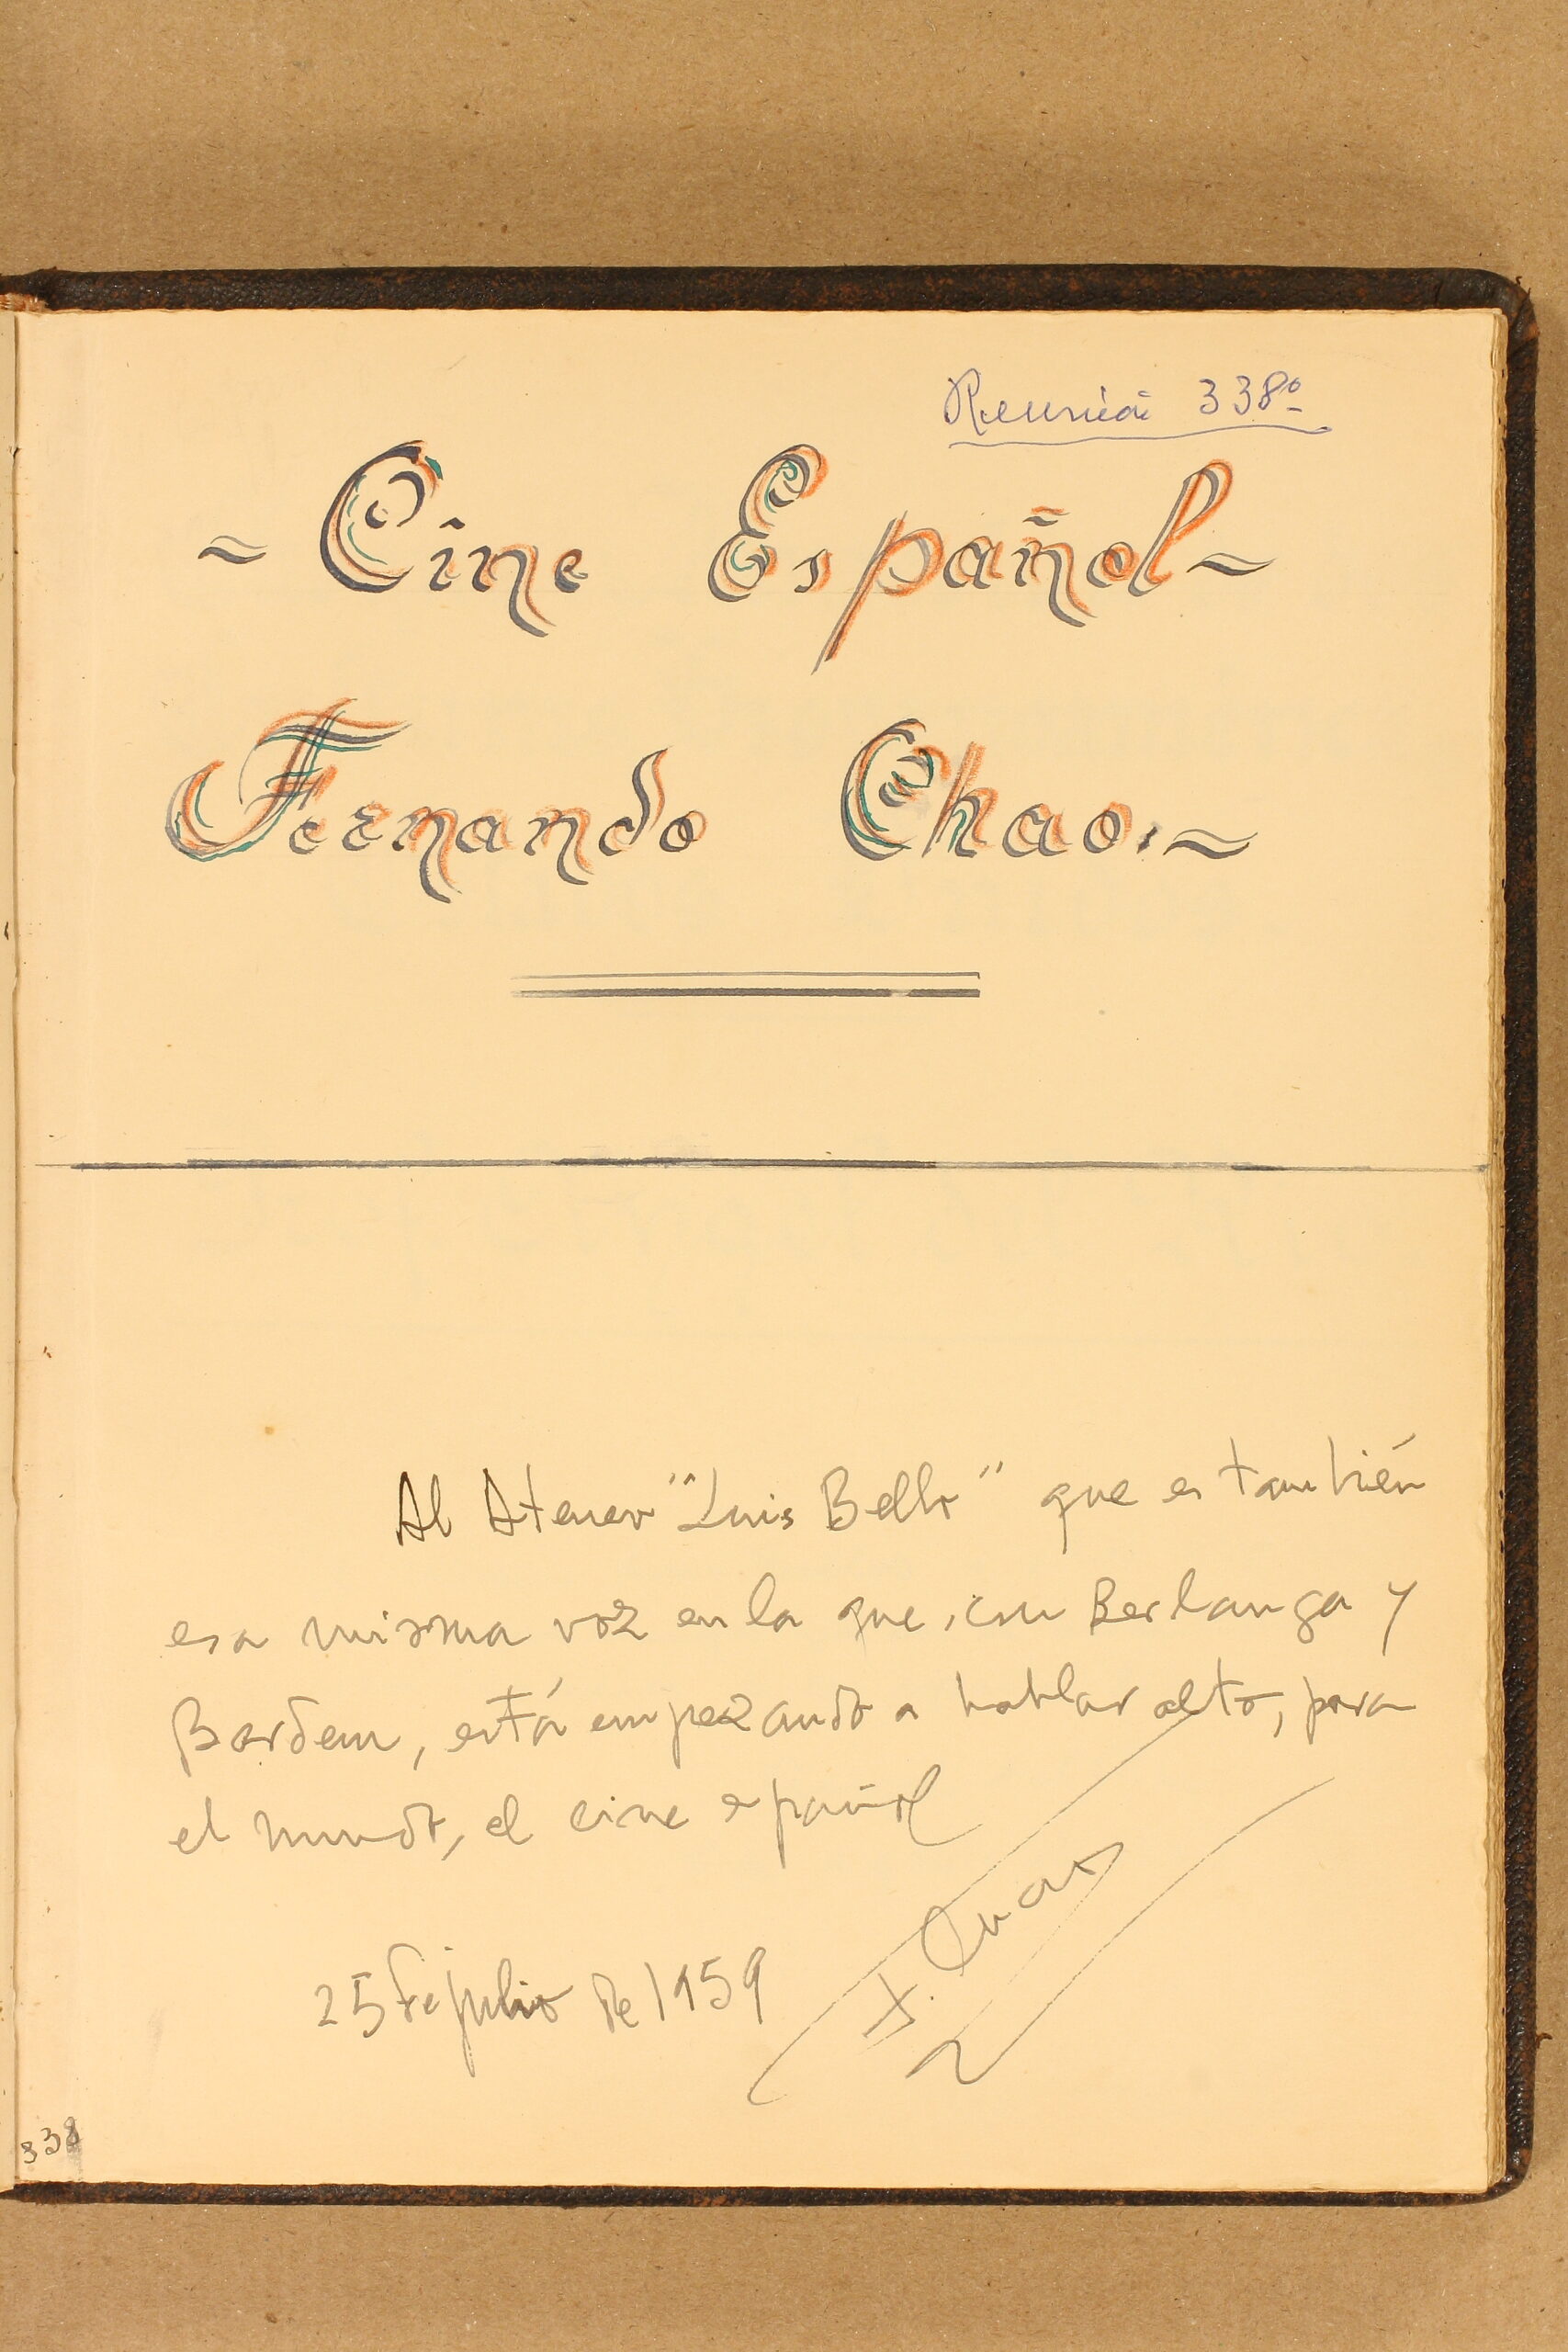 Reunión 338º
~ Cine Español ~
Fernando Chao.~
Al Ateneo "Luis Bello" que es también
esa misma voz en la que, con Berlanga y
Bardem, está empezando a hablar alto, para
el mundo, el cine español
F. Chao
25 de julio de 1959
338